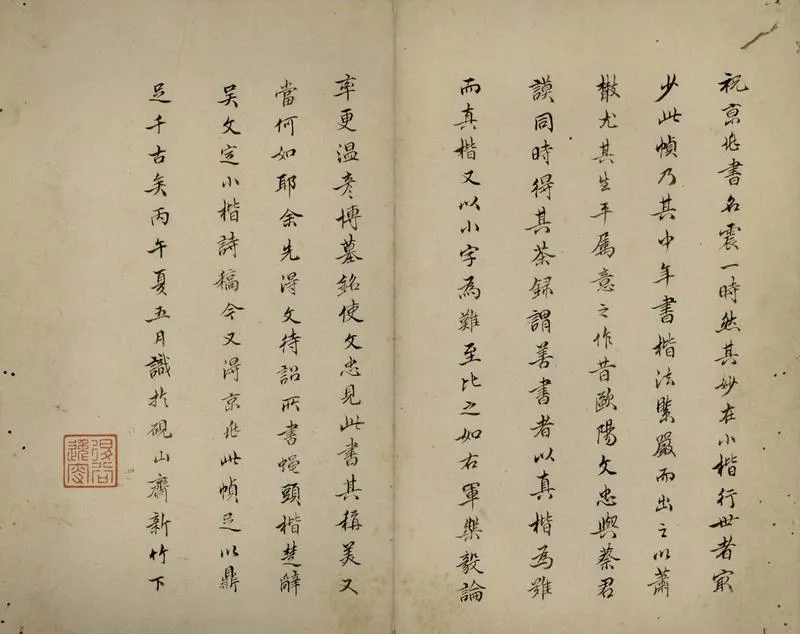 祝京兆書名震一時然其妙在小楷行世者寔
少此幀乃其中年書楷法緊嚴而出之以蕭
散尤其生平属意之作昔歐陽文忠與蔡君
謨同時得其茶録謂善書者以真楷為難
而真楷又以小字為難至比之如右軍樂毅論
率更温彦博墓銘使文忠見此書其稱美又
當何如耶余先得文待詔所書蠅頭楷楚辭
吴文定小楷詩稿今又得京兆此幀足以鼎
足千古矣丙午夏五月識於硯山齋新竹下